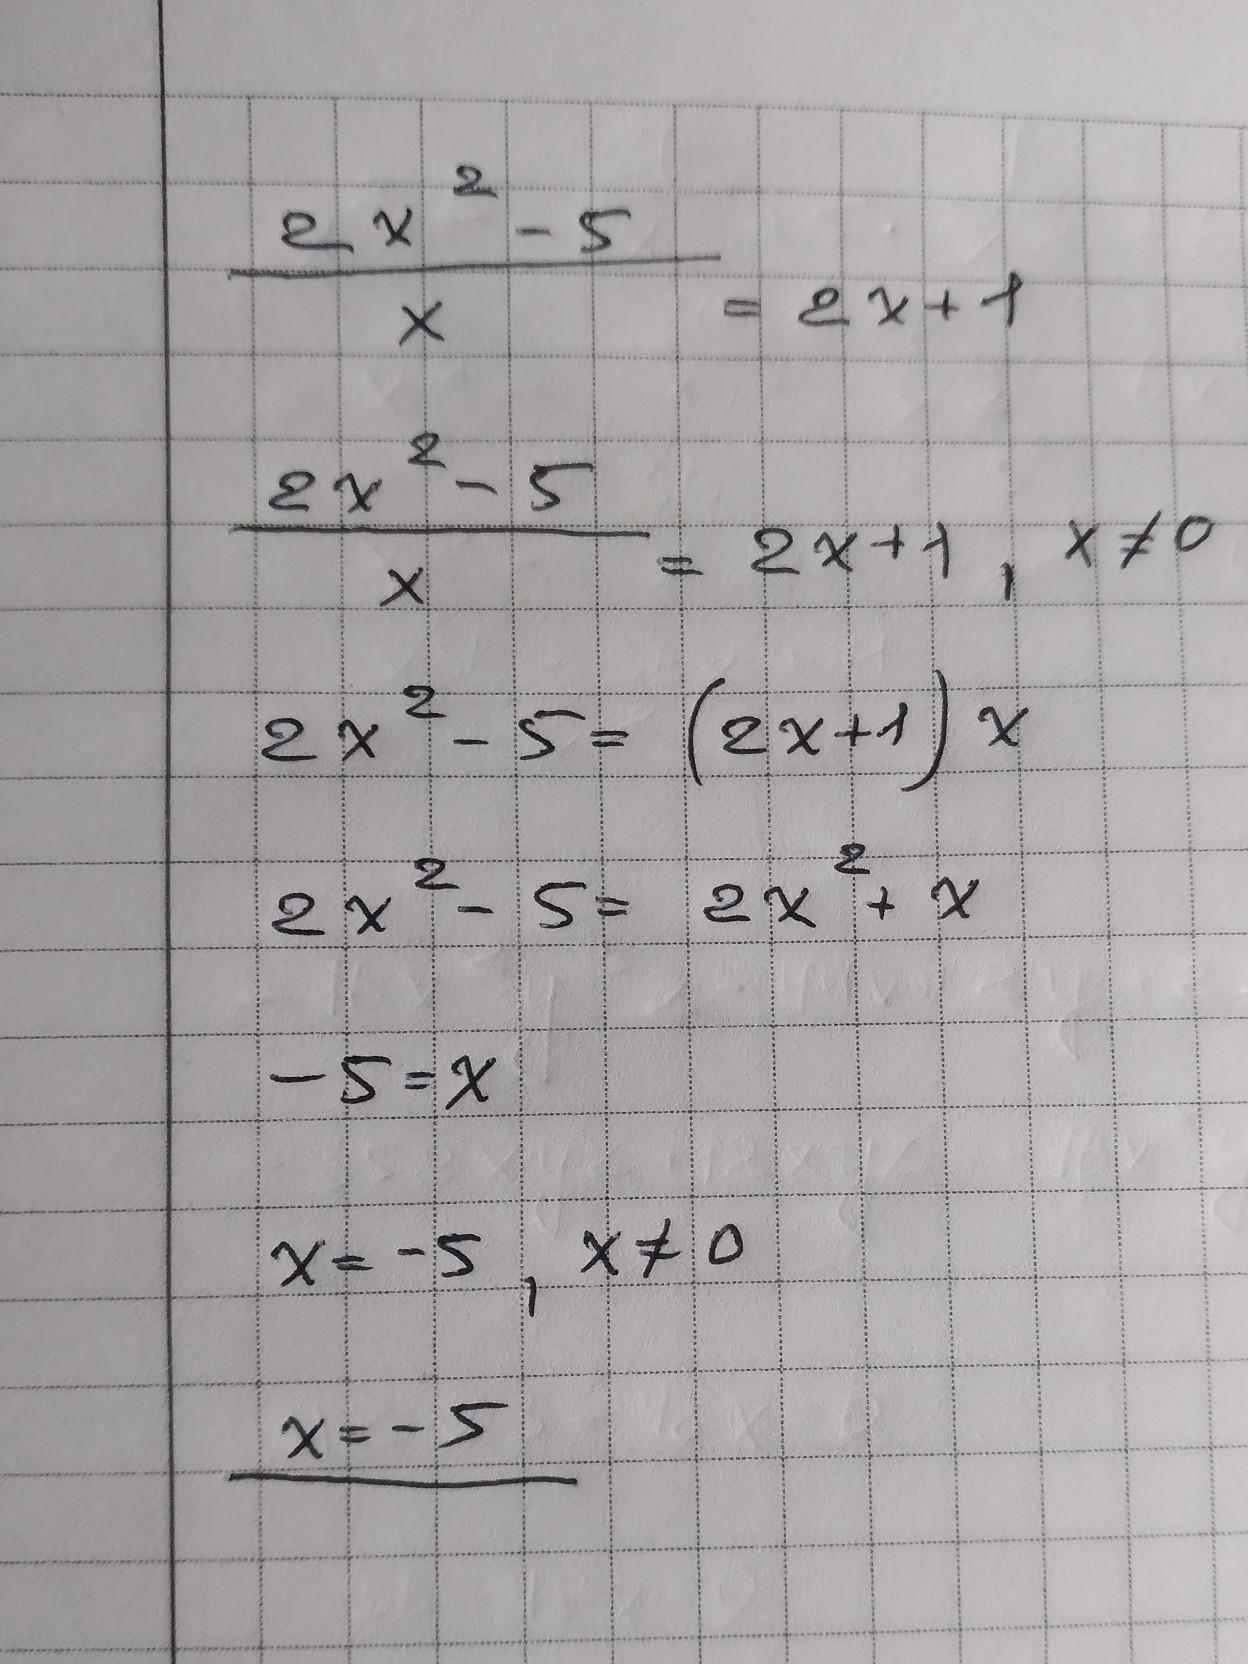 (2x² - 5)/x = 2x + 1
(2x² - 5)/x = 2x + 1, x ≠ 0
2x² - 5 = (2x + 1) x
2x² - 5 = 2x² + x
-5 = x
x = -5, x ≠ 0
x = -5